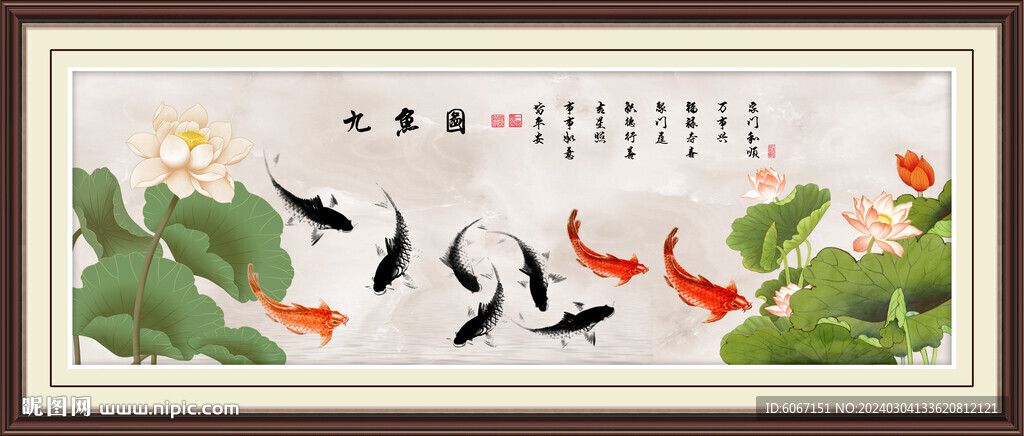 九魚圖
家门和顺
万事兴
福禄寿喜
聚门庭
积德行善
吉星照
事事如意
皆平安
昵图网 www.nipic.com
ID:6067151 NO:20240304133620812121